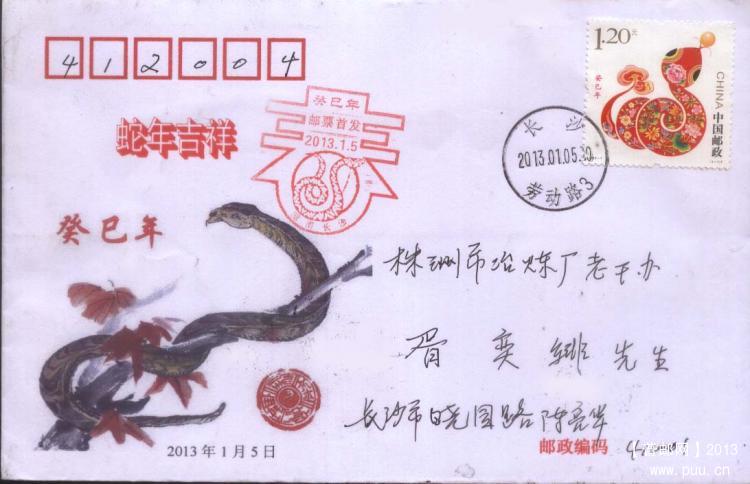 412004
1.20元
癸巳年
CHINA 中国邮政
蛇年吉祥
癸巳年
邮票首发
2013.1.5
长沙
长沙
2013.01.05
劳动路3
癸巳年
株洲市冶炼厂老干办
胥奕 先生
长沙市晓园路陈亮华
2013年1月5日
邮政编码
邮网】2013
www.puu.cn